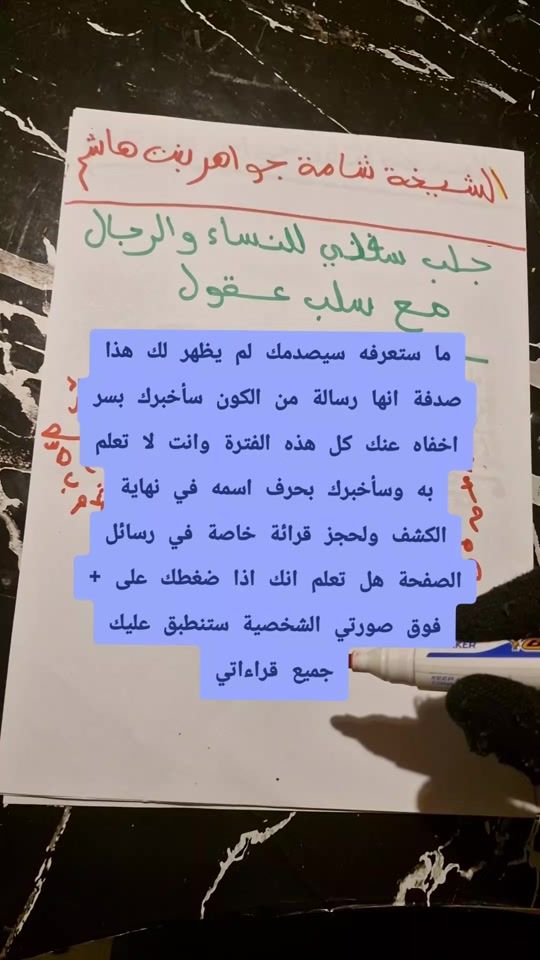 الشيخة شامة جواهر بنت هاشم
جلب سفلي للنساء والرجال
مع سلب عقول
ما ستعرفه سيصدمك لم يظهر لك هذا
صدفة انها رسالة من الكون سأخبرك بسر
اخفاه عنك كل هذه الفترة وانت لا تعلم
به وسأخبرك بحرف اسمه في نهاية
الكشف ولحجز قرائة خاصة في رسائل
الصفحة هل تعلم انك اذا ضغطك على +
فوق صورتي الشخصية ستنطبق عليك
جميع قراءاتي